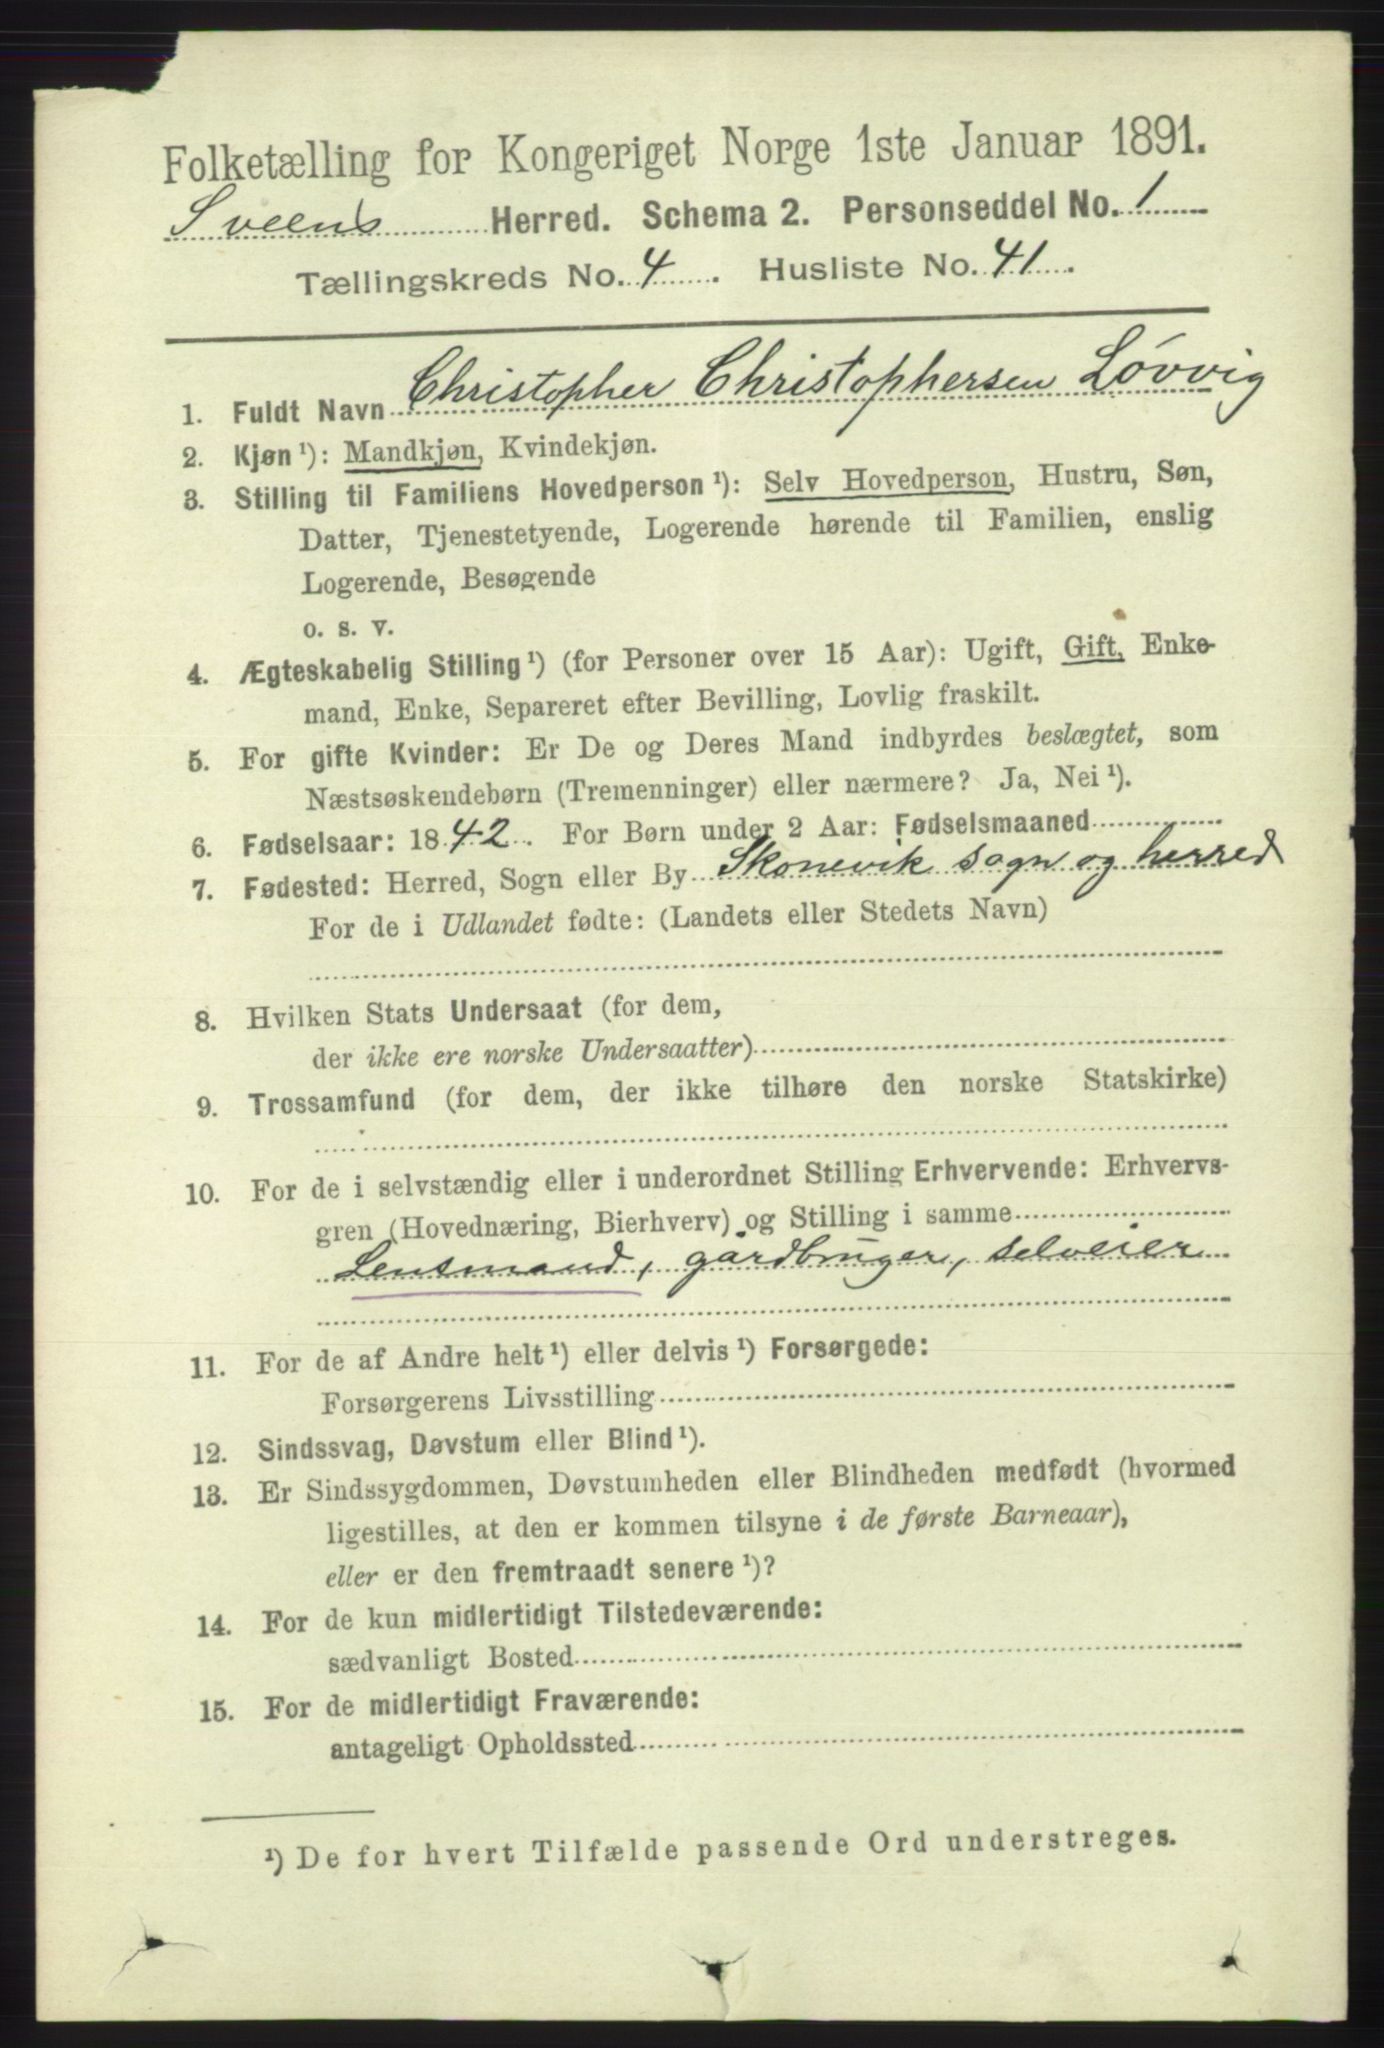 Folketælling for Kongeriget Norge 1ste Januar 1891.
Sveens Herred. Schema 2. Personseddel No. 1
Tællingskreds No. 4. Husliste No. 41.
1. Fuldt Navn Christopher Christophersen Løvvig
2. Kjøn ¹): Mandkjøn, Kvindekjøn.
3. Stilling til Familiens Hovedperson ¹): Selv Hovedperson, Hustru, Søn,
Datter, Tjenestetyende, Logerende hørende til Familien, enslig
Logerende, Besøgende
o. s. v.
4. Ægteskabelig Stilling ¹) (for Personer over 15 Aar): Ugift, Gift, Enke-
mand, Enke, Separeret efter Bevilling, Lovlig fraskilt.
5. For gifte Kvinder: Er De og Deres Mand indbyrdes beslægtet, som
Næstsøskendebørn (Tremenninger) eller nærmere? Ja, Nei ¹).
6. Fødselsaar: 1842. For Børn under 2 Aar: Fødselsmaaned
7. Fødested: Herred, Sogn eller By Skonevik sogn og herred
For de i Udlandet fødte: (Landets eller Stedets Navn)
8. Hvilken Stats Undersaat (for dem,
der ikke ere norske Undersaatter)
9. Trossamfund (for dem, der ikke tilhøre den norske Statskirke)
10. For de i selvstændig eller i underordnet Stilling Erhvervende: Erhvervs-
gren (Hovednæring, Bierhverv) og Stilling i samme
Lensmand, gårdbruger, selveier
11. For de af Andre helt ¹) eller delvis ¹) Forsørgede:
Forsørgerens Livsstilling
12. Sindssvag, Døvstum eller Blind ¹).
13. Er Sindssygdommen, Døvstumheden eller Blindheden medfødt (hvormed
ligestilles, at den er kommen tilsyne i de første Barneaar),
eller er den fremtraadt senere ¹)?
14. For de kun midlertidigt Tilstedeværende:
sædvanligt Bosted
15. For de midlertidigt Fraværende:
antageligt Opholdssted
¹) De for hvert Tilfælde passende Ord understreges.